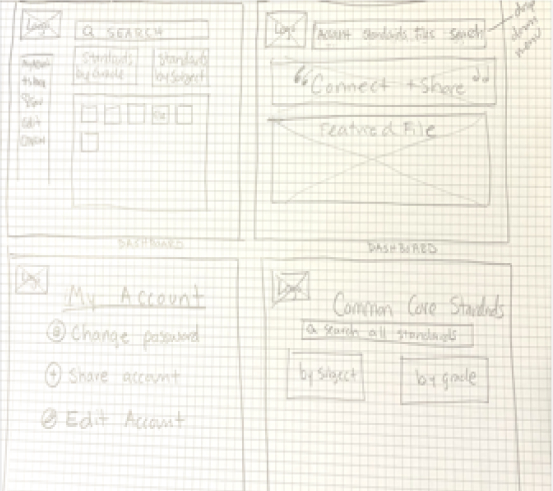 Logo
SEARCH
Standards
by Grade
Standards
by Subject
Share
User
Edit
DASHBOARD
Logo
Account standards files search
drop
down
menu
"Connect + Share"
Featured File
DASHBOARD
Logo
My Account
Change password
+ Share account
Edit Account
Logo
Common Core Standards
search all standards
by subject
by grade